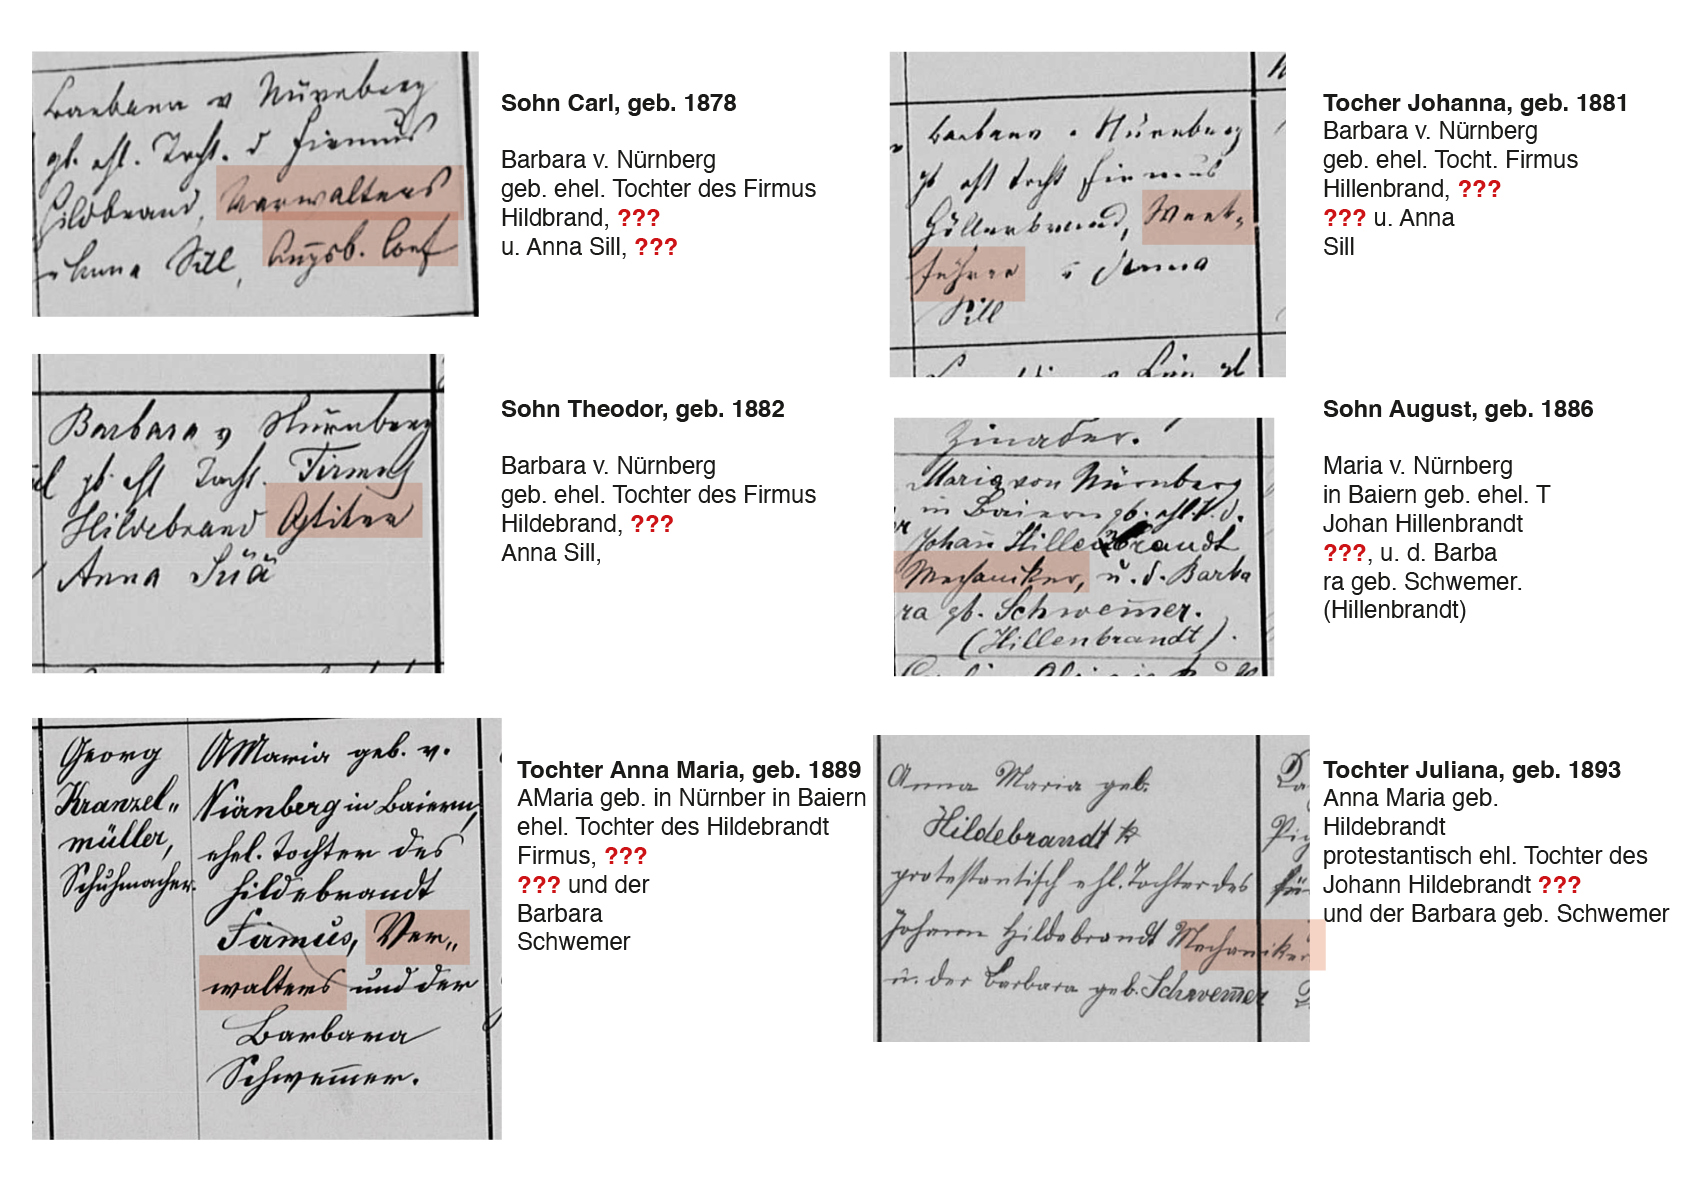 Barbara v Nürnberg
gb. ehl. Tocht. d Firmus
Hildbrand, Verwalters
u Anna Sill, Augsb. Conf
Sohn Carl, geb. 1878
Barbara v. Nürnberg
geb. ehel. Tochter des Firmus
Hildbrand, ???
u. Anna Sill, ???
Barbara v Nürnberg
gb ehl Tocht Firmus
Hillenbrand, Werk-
führer u Anna
Sill
Tocher Johanna, geb. 1881
Barbara v. Nürnberg
geb. ehel. Tocht. Firmus
Hillenbrand, ???
??? u. Anna
Sill
Barbara v Nürnberg
gb. ehl Tocht. Firmus
Hildebrand
Anna
Sohn Theodor, geb. 1882
Barbara v. Nürnberg
geb. ehel. Tochter des Firmus
Hildebrand, ???
Anna Sill,
Maria von Nürnberg
in Baiern gb. ehl. T. d.
Johañ Hillenbrandt
Mechaniker, u. d. Barba
ra gb. Schwem̄er.
(Hillenbrandt).
Sohn August, geb. 1886
Maria v. Nürnberg
in Baiern geb. ehel. T
Johan Hillenbrandt
???, u. d. Barba
ra geb. Schwemer.
(Hillenbrandt)
Georg
Kranzel„
müller,
Schuhmacher.
AMaria geb. v.
Nürnberg in Baiern,
ehel. Tochter des
Hildebrandt
Firmus, Ver„
walters und der
Barbara
Schwem̄er.
Tochter Anna Maria, geb. 1889
AMaria geb. in Nürnber in Baiern
ehel. Tochter des Hildebrandt
Firmus, ???
??? und der
Barbara
Schwemer
Anna Maria geb.
Hildebrandt
protestantisch ehl. Tochter des
Johann Hildebrandt Mechaniker
u. der Barbara geb. Schwem̄er
Tochter Juliana, geb. 1893
Anna Maria geb.
Hildebrandt
protestantisch ehl. Tochter des
Johann Hildebrandt ???
und der Barbara geb. Schwemer